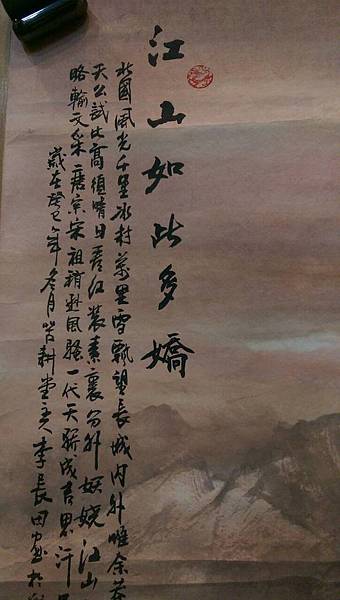 江山如此多嬌
北國風光千里冰封萬里雪飄望長城內外惟余莽
天公試比高須晴日看紅裝素裹分外妖嬈江山
略輸文采唐宗宋祖稍遜風騷一代天驕成吉思汗
歲在癸巳年冬月 耕堂主人李長田畫於